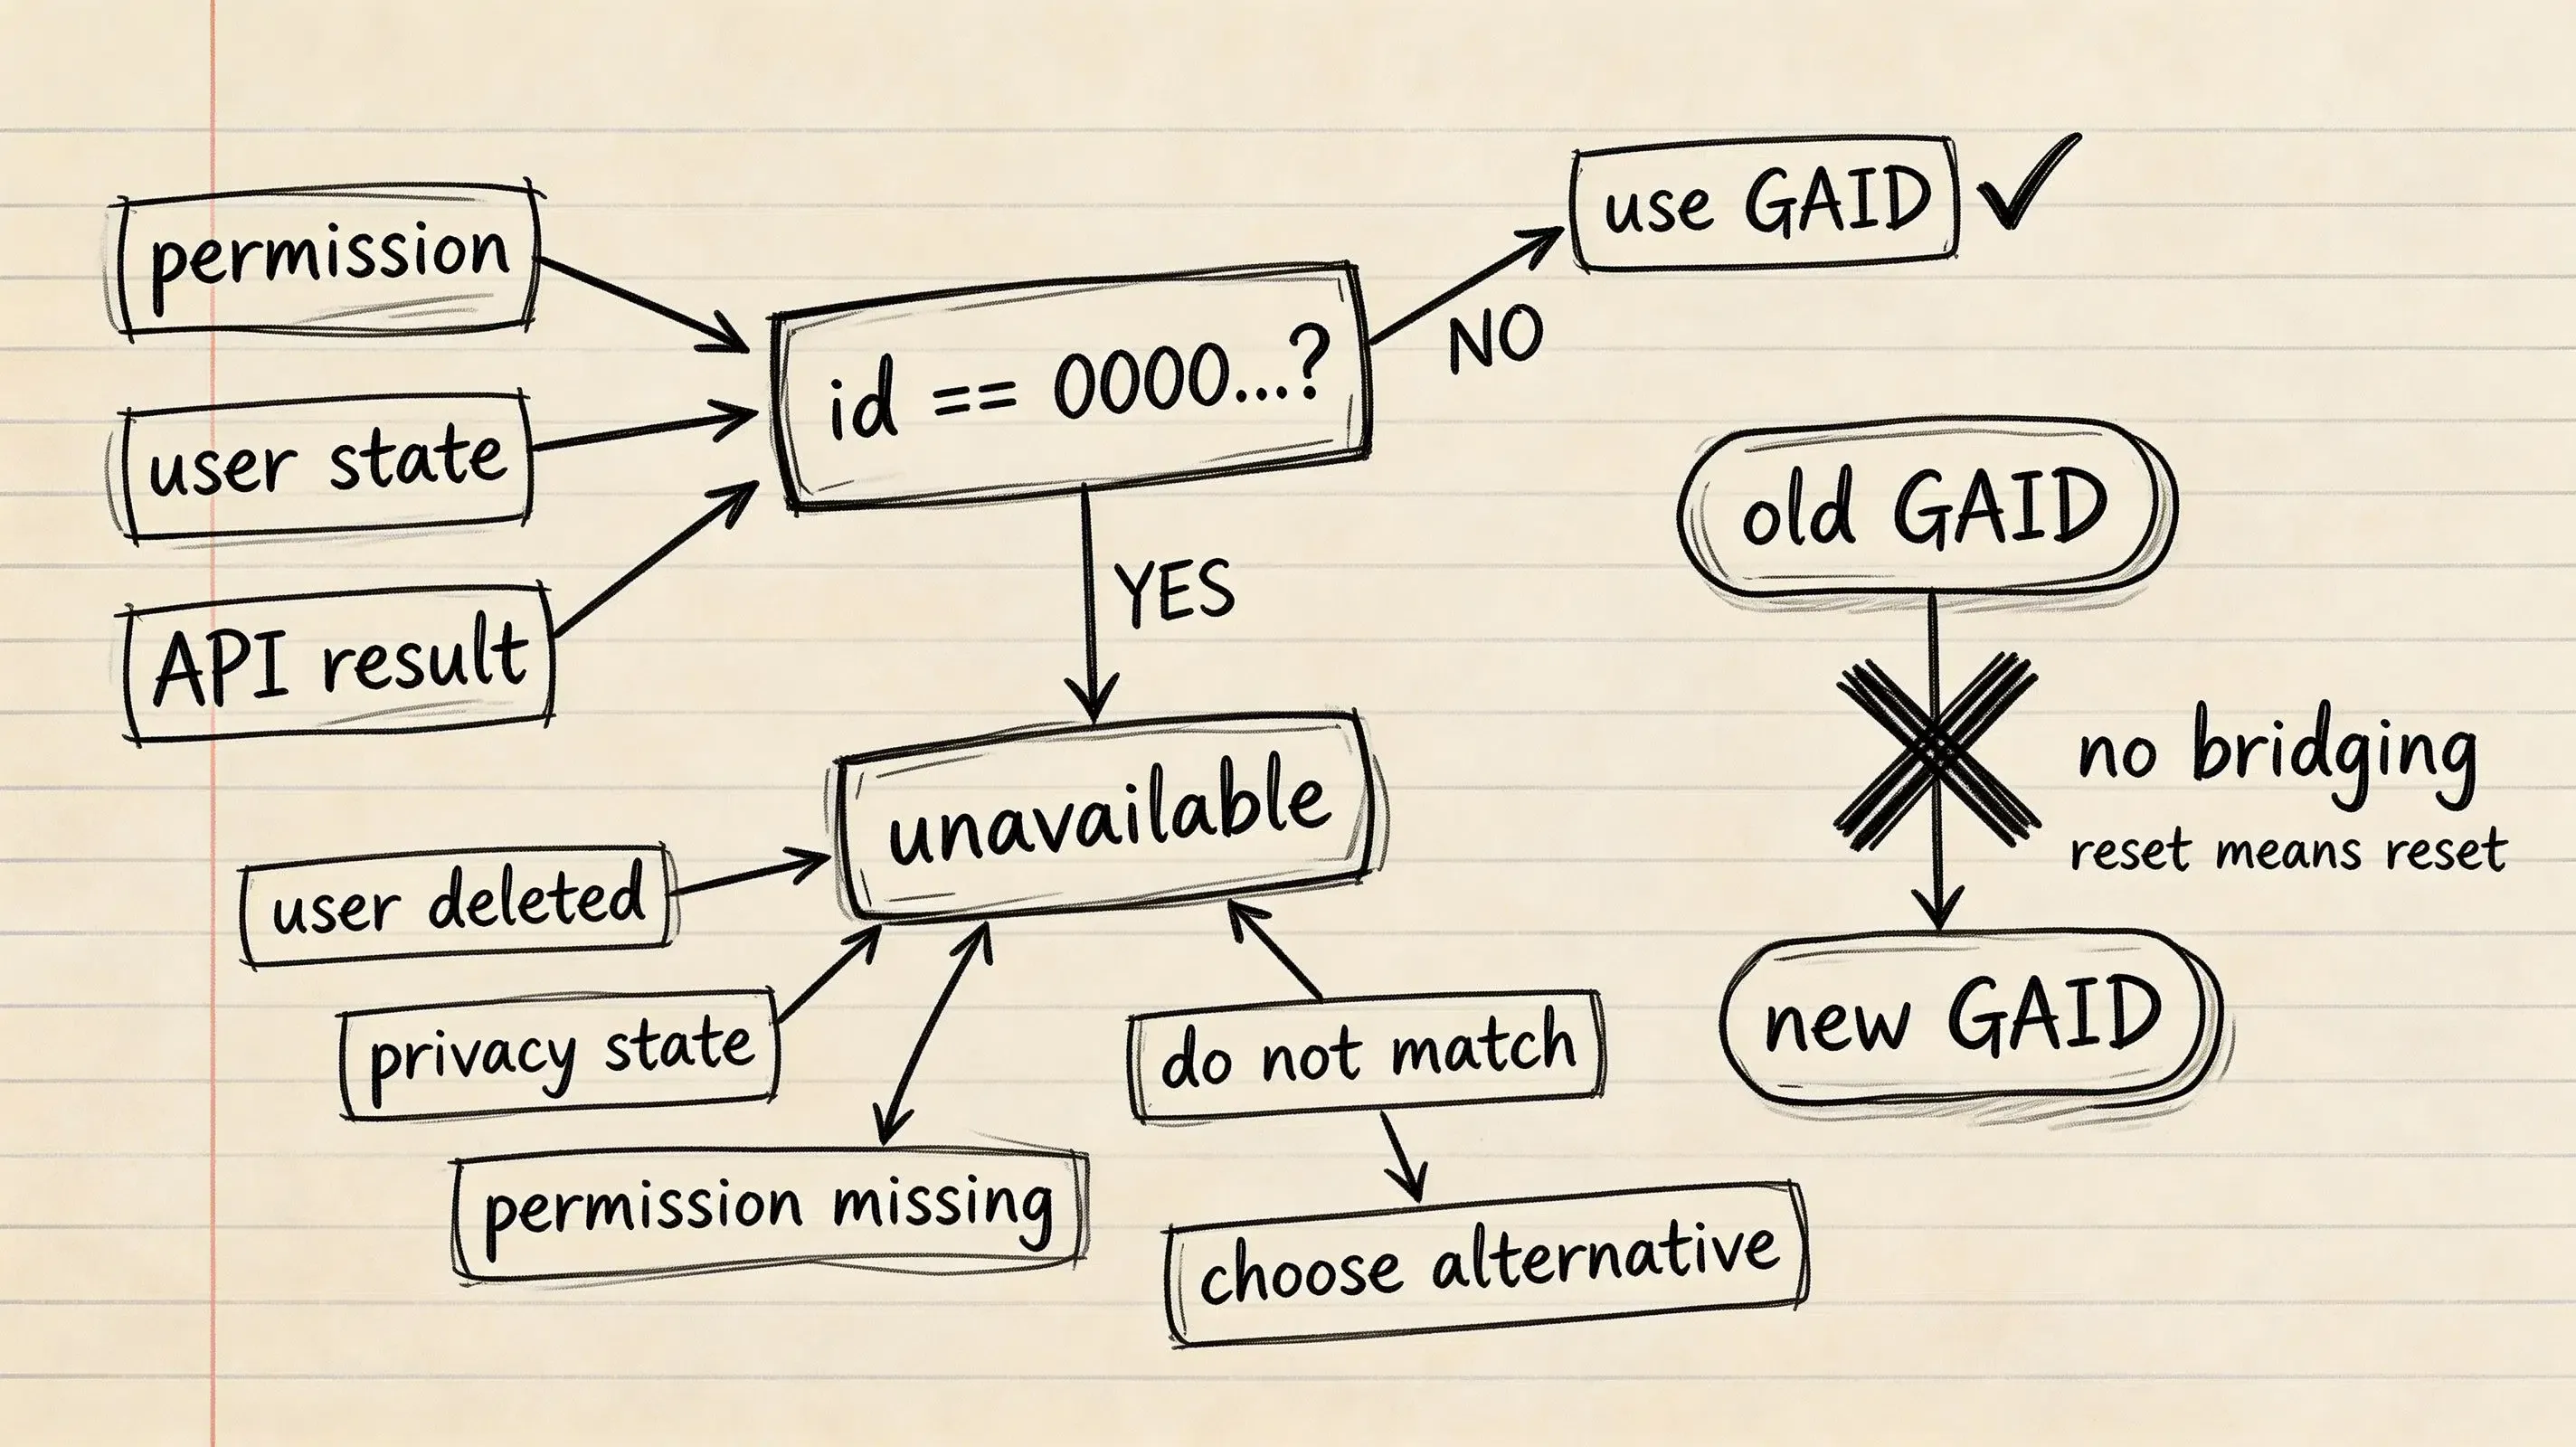 permission
use GAID
id == 0000...?
NO
user state
old GAID
API result
YES
no bridging
reset means reset
unavailable
user deleted
privacy state
do not match
new GAID
permission missing
choose alternative